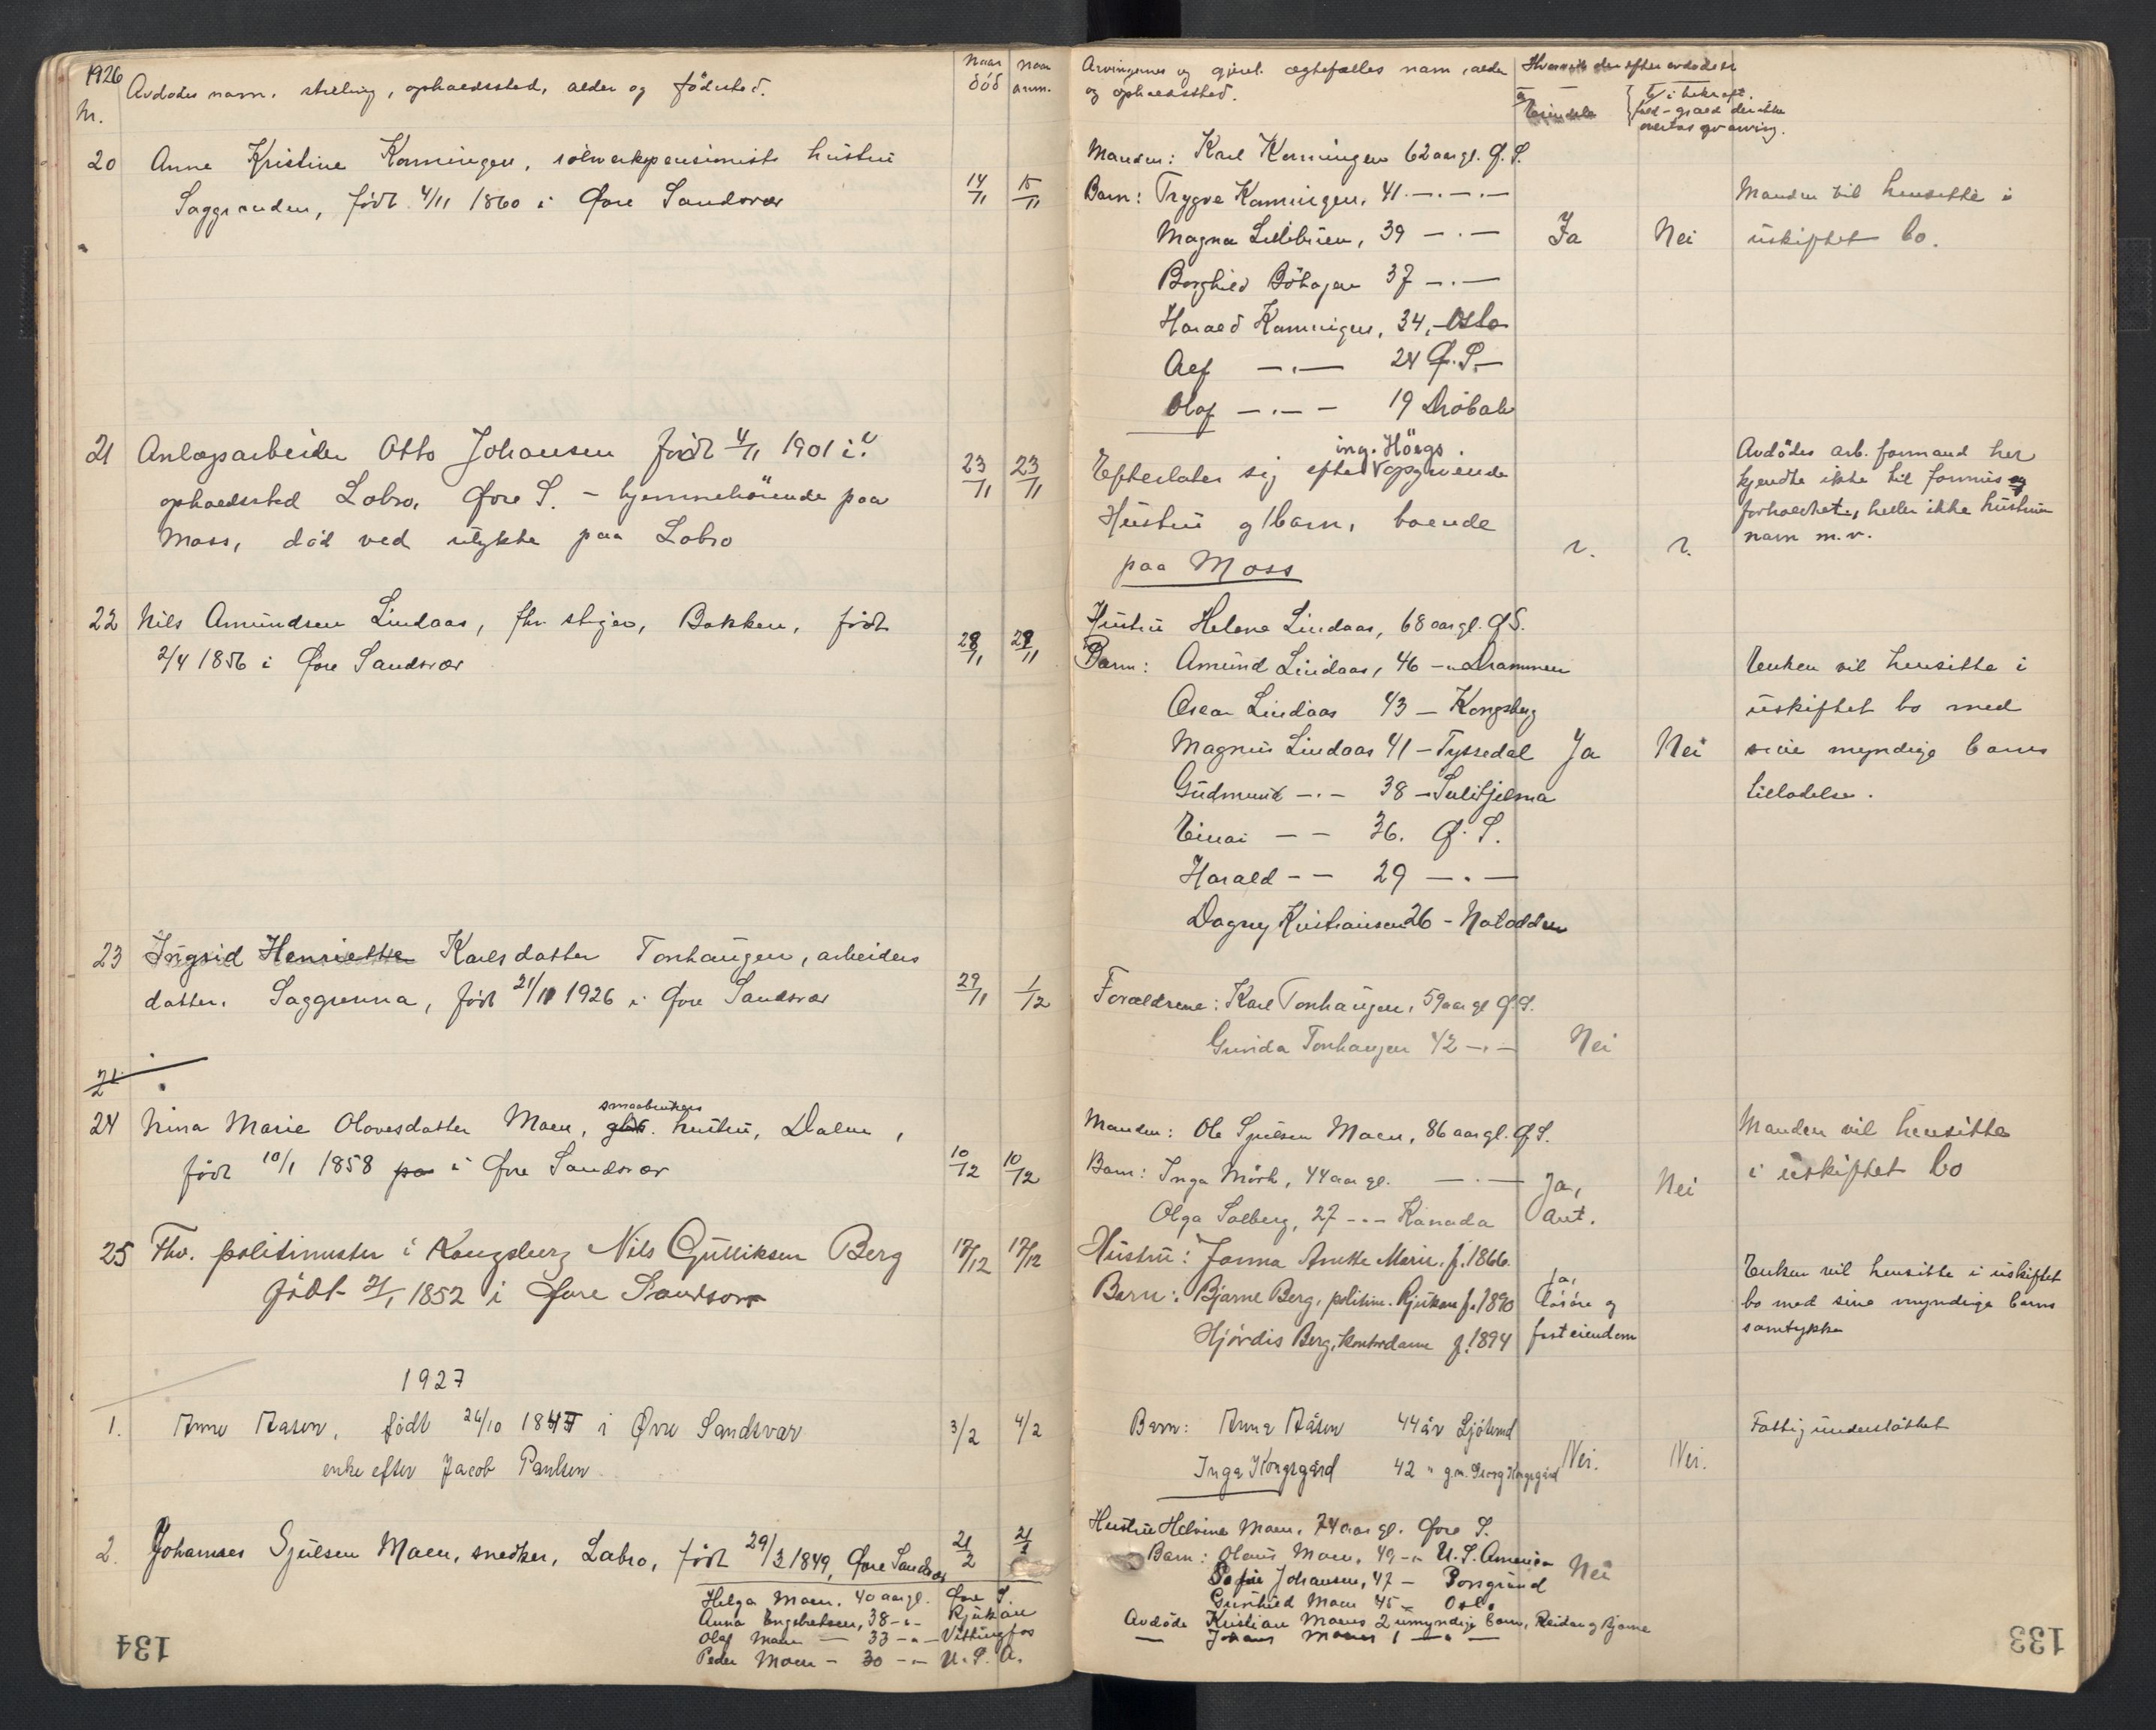 1926
Nr.
Avdødes navn, stilling, opholdssted, alder og fødested.
Naar død
Naar anm.
20 Anne Kristine Kamningen, sølvverkspensionists hustru
Saggrenden, født 4/11 1860 i Øvre Sandsvær
14/11 15/11
21 Anlægsarbeider Otto Johansen født 4/11 1901 i ?
opholdssted Labro, Øvre S. - hjemmehørende paa
Moss, død ved ulykke paa Labro
23/11 23/11
22 Nils Amundsen Lindaas, fhv. stiger, Bakken, født
2/4 1856 i Øvre Sandsvær
28/11 29/11
23 Ingrid Henriette Karlsdatter Tonhaugen, arbeiders
datter, Saggrenna, født 21/11 1926 i Øvre Sandsvær
29/11 1/12
24 Nina Marie Olavesdatter Moen, smaabrukers hustru, Dalen,
født 10/1 1858 pa i Øvre Sandsvær
10/12 10/12
25 Fhv. politimester i Kongsberg Nils Gulliksen Berg
født 21/1 1852 i Øvre Sandsvær
17/12 17/12
1927
1. Anne Aasen, født 26/10 184 i Øvre Sandsvær
enke efter Jacob Paulsen
3/2 4/2
2. Johannes Sjulsen Moen, snedker, Labro, født 29/3 1849, Øvre Sandsvær
21/2
Helga Moen, 40 aar gl. Øvre S.
Anna Engebretsen, 38 -"- Rjukan
Olaf Moen — 33 -"- Vittingfos
Peder Moen - 30 -"- U. S. A.
134
Arvingernes og gjenl. ægtefælles navn, alder
og opholdssted.
Hvorvidt der efter avdøde er
Eiendele
Manden: Karl Kamningen 62 aar gl. Ø. S.
Barn: Trygve Kamningen, 41 -.-.-
Magna Lillebuen, 39 -.-
Borghild Böhagen 37 -.-
Harald Kamningen, 34, - Oslo
Alf -.- 24 Ø. S. -
Olaf -.- 19 Drøbak
Ja Nei
Manden vil hensitte i
uskiftet bo.
Efterlater sig efter ing. Høegs opgivende
Hustru og 1 barn, boende
paa Moss
?. ?.
Avdødes arb. formand her
kjendte ikke til formues
forholdet, heller ikke hustruens
navn m.v.
Hustru Helene Lindaas, 68 aar gl. Ø S.
Barn: Amund Lindaas, 46 -"- Drammen
Oscar Lindaas 43 - Kongsberg
Magnus Lindaas 41 - Tyssedal
Gudmund -.- 38 - Sulitjelma
Einar - - 36. Ø. S.
Harald - - 29 -.-
Dagny Kristiansen 26 - Notodden
Ja Nei
Enken vil hensitte i
uskiftet bo med
sine myndige barns
tilladelse.
Forældrene: Karl Tonhaugen, 59 aar gl Ø. S.
Gunda Tonhaugen 42 -.-
Nei
Manden: Ole Sjulsen Moen, 86 aar gl. Ø S.
Barn: Inga Mörk, 44 aar gl. -.-
Olga Solberg, 27 --- Kanada
Ja, Nei
Manden vil hensitte
i uskiftet bo
Hustru: Janna Anette Marie. f. 1866.
Barn: Bjarne Berg, politim. Rjukan f. 1890
Hjørdis Berg, kontordame f. 1894
Ja, løsøre og
fast eiendom
Enken vil hensitte i uskiftet
bo med sine myndige barns
samtykke
Barn: Anna Aasen 44 år
Inga Kongsgård 42 " g.m. Georg Kongsgård
Nei. Nei.
Fattigunderstøttet
Hustru Helvine Moen, 74 aar gl. Øvre S.
Barn: Olaus Moen, 49 -"- U. S. America
Sofie Johansen, 47 - Porsgrund
Gunhild Moen 45 - Oslo
Avdøde Kristian Moens 2 umyndige barn, Reidar og Bjarne
— Moens 1 — " —
Nei
133